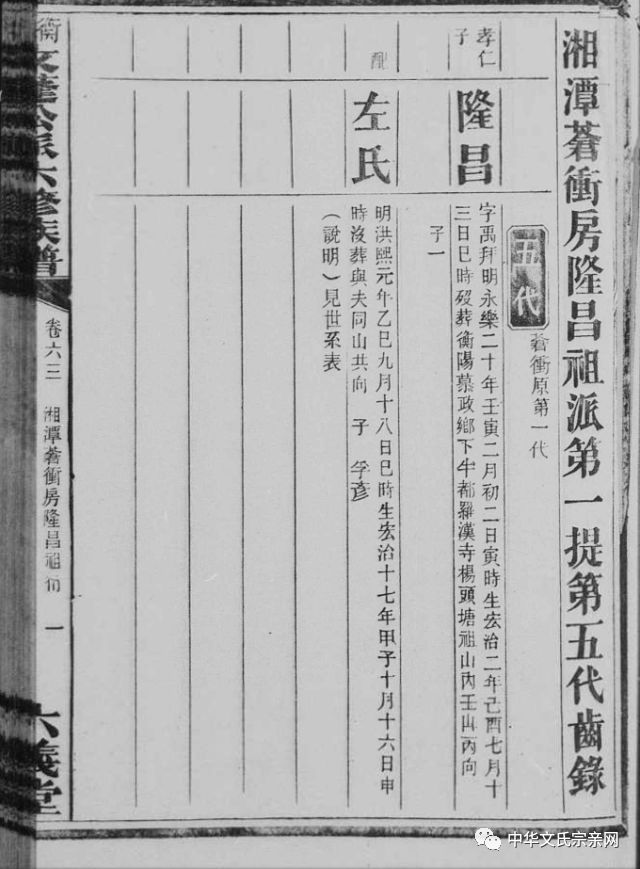 湘潭蒼衝房隆昌祖派第一提第五代齒錄
五代
蒼衝原第一代
孝仁
子
隆昌
字禹拜明永樂二十年壬寅二月初二日寅時生宏治二年己酉七月十
三日巳時歿葬衡陽慕政鄉下牛都羅漢寺楊頭塘祖山內壬山丙向
子一
配
左氏
明洪熙元年乙巳九月十八日巳時生宏治十七年甲子十月十六日申
時沒葬與夫同山共向 子 孚彥
(說明)見世系表
衡
公派六修族譜
卷六三
湘潭蒼衝房隆昌祖
一
六義堂
中华文氏宗亲网